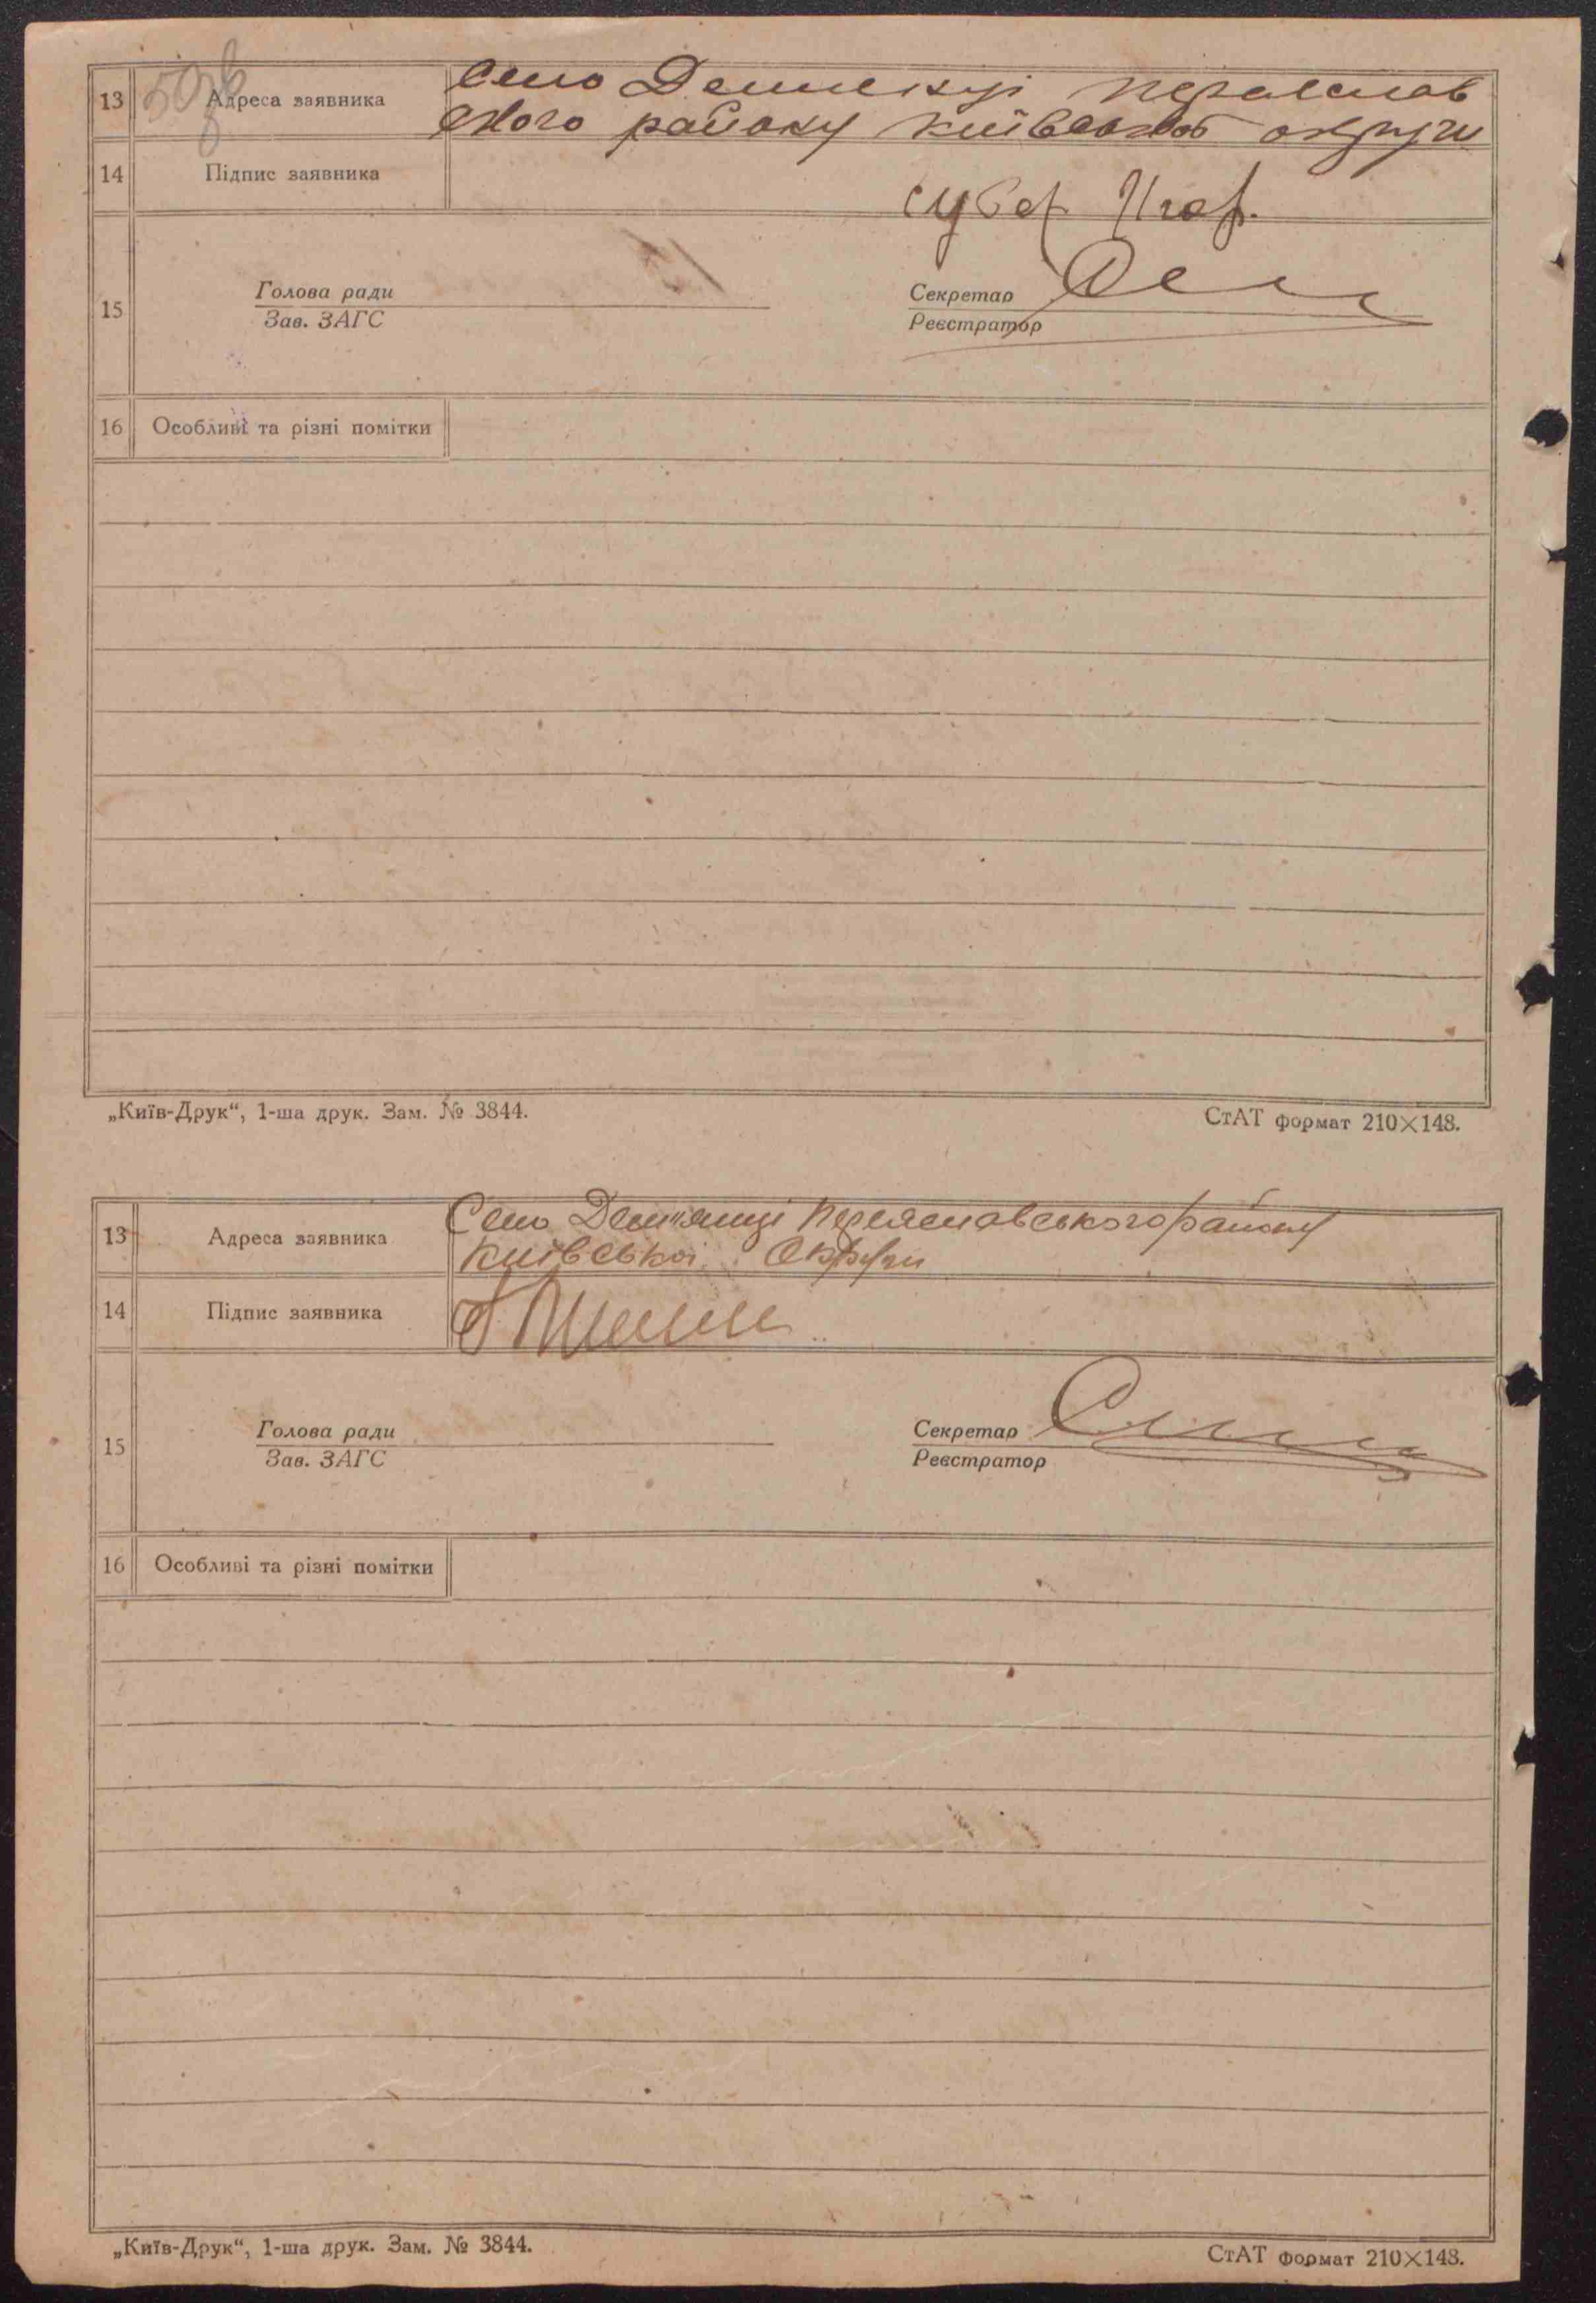 13 Адреса заявника Село
район округи
14 Підпис заявника
15 Голова ради Секретар
Зав. ЗАГС Реєстратор
16 Особливі та різні помітки
„Київ-Друк“, 1-ша друк. Зам. № 3844. СтАТ формат 210×148.
13 Адреса заявника Село Дем"янці Переяславського району
Київської Округи
14 Підпис заявника
15 Голова ради Секретар
Зав. ЗАГС Реєстратор
16 Особливі та різні помітки
„Київ-Друк“, 1-ша друк. Зам. № 3844. СтАТ формат 210×148.